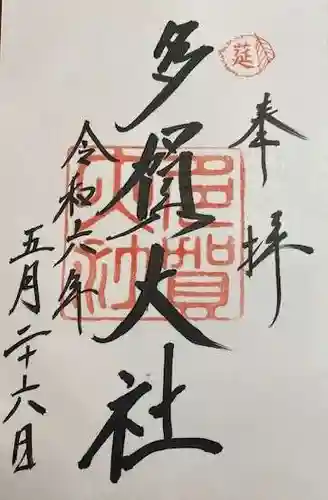 莚
奉拝
多賀大社
多賀大社
令和六年
五月二十六日